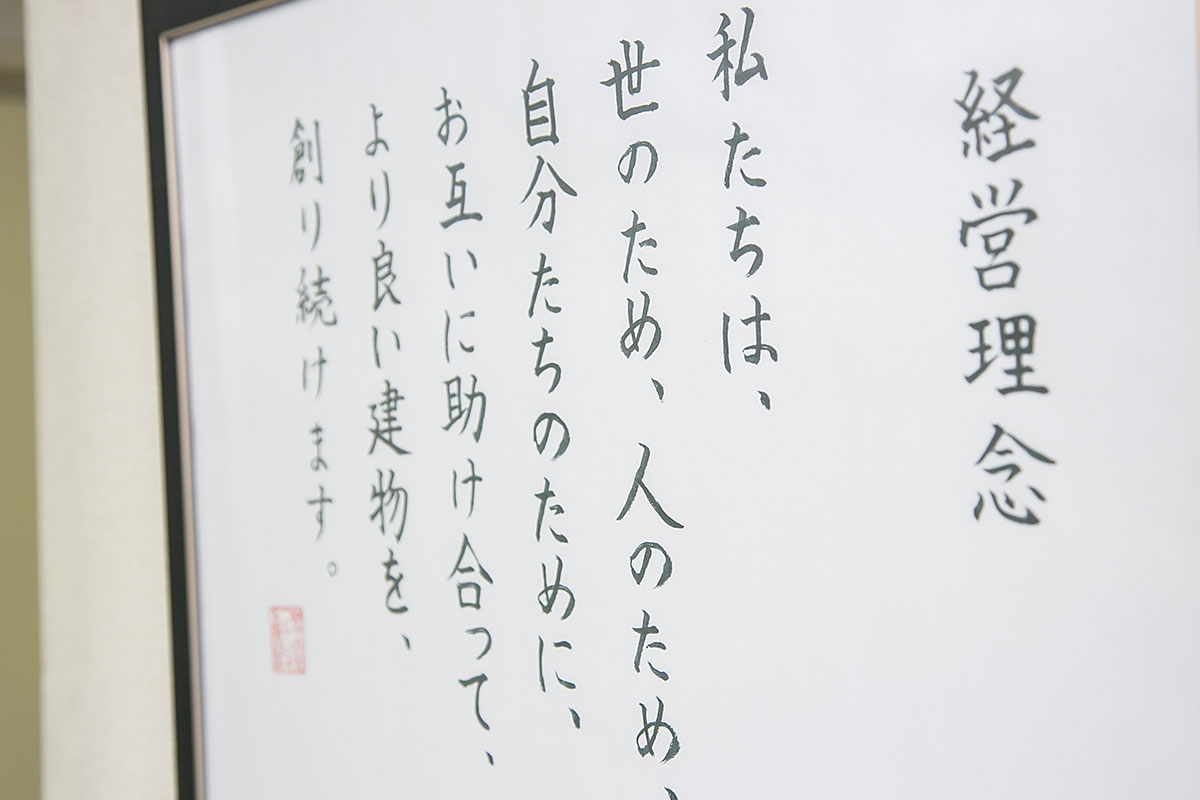 経営理念
私たちは、
世のため、人のため、
自分たちのために、
お互いに助け合って、
より良い建物を、
創り続けます。